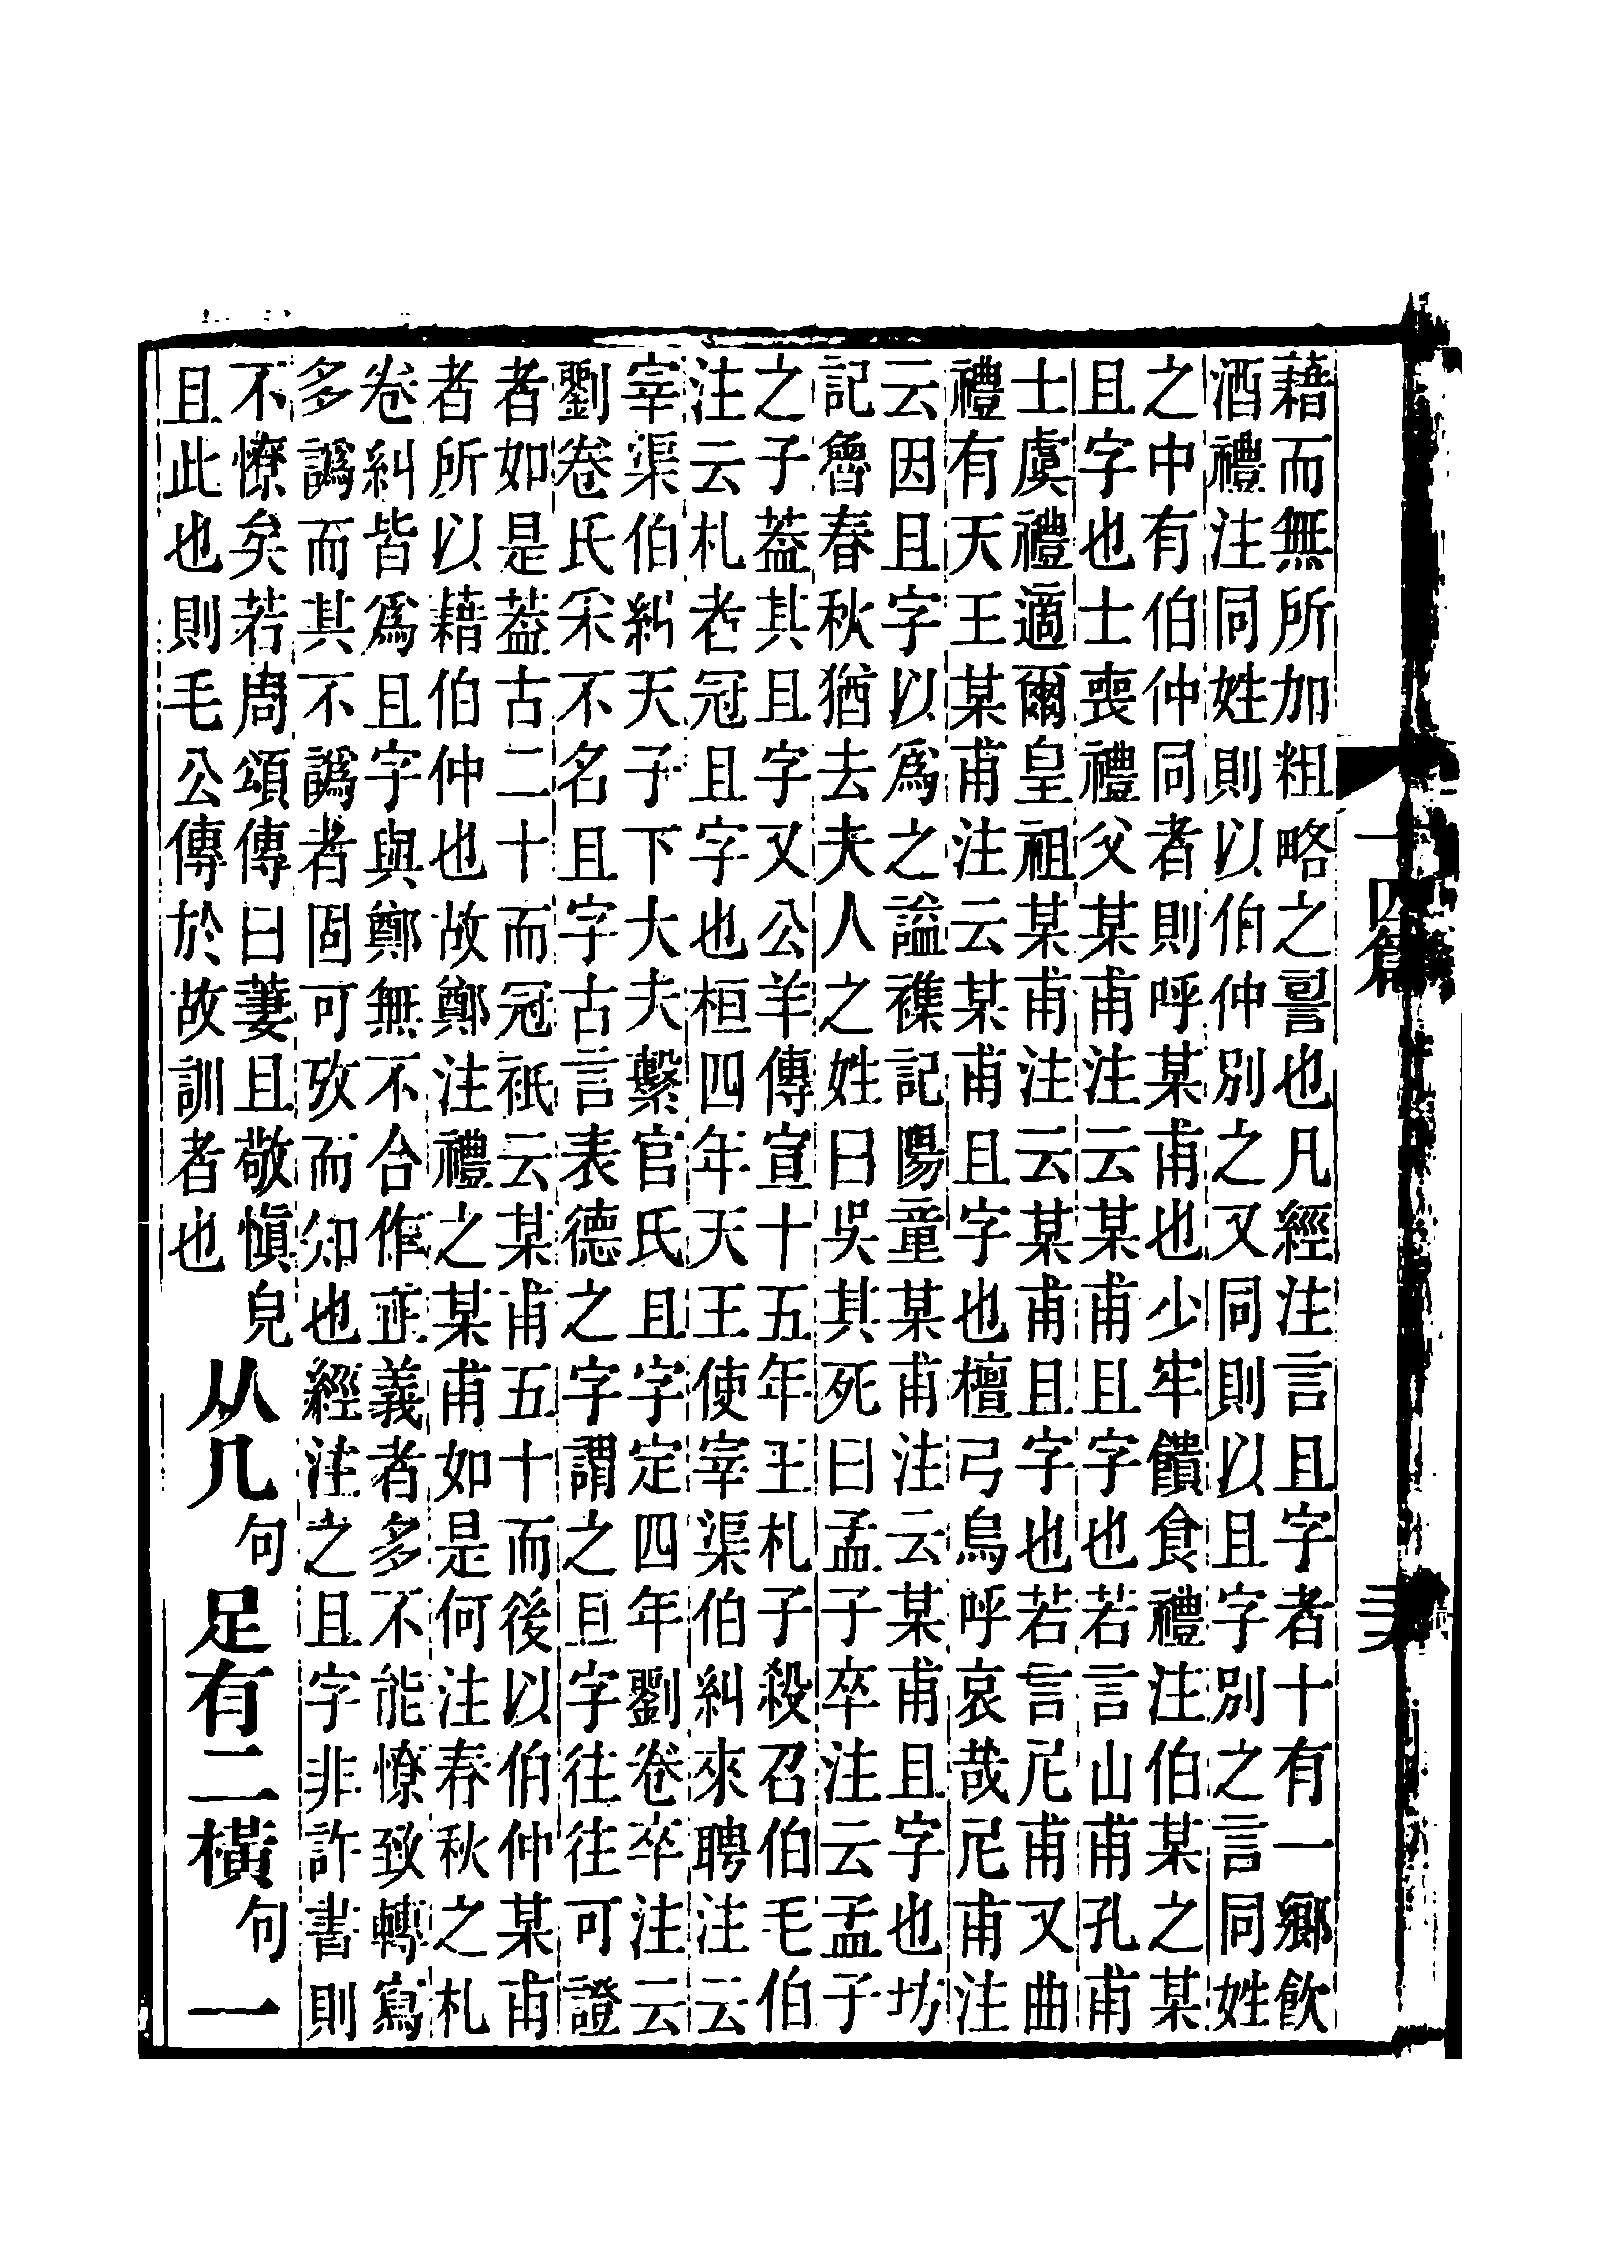 藉而無所加粗略之䛐也凡經注言且字者十有一鄉飲
酒禮注同姓則以伯仲別之又同則以且字別之言同姓
之中有伯仲同者則呼某甫也少牢饋食禮注伯某之某
且字也士喪禮父某甫注云某甫且字也若言山甫孔甫
士虞禮適爾皇祖某甫注云某甫且字也若言尼甫又曲
禮有天王某甫注云某甫且字也檀弓烏呼哀哉尼甫注
云因且字以爲之謚襍記陽童某甫注云某甫且字也坊
記魯春秋猶去夫人之姓曰吳其死曰孟子卒注云孟子
之子葢其且字又公羊傳宣十五年王札子殺召伯毛伯
注云札老冠且字也桓四年天王使宰渠伯糾來聘注云
宰渠伯糾天子下大夫繫官氏且字定四年劉卷卒注云
劉卷氏采不名且字古言表德之字謂之且字往往可證
者如是葢古二十而冠祇云某甫五十而後以伯仲某甫
者所以藉伯仲也故鄭注禮之某甫如是何注春秋之札
卷糾皆爲且字與鄭無不合作正義者多不能憭致轉寫
多譌而其不譌者固可攷而知也經注之且字非許書則
不憭矣若周頌傳曰萋且敬愼皃
且此也則毛公傳於故訓者也
从几句足有二橫句一